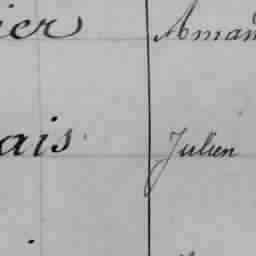 ier Aman
ais Julien